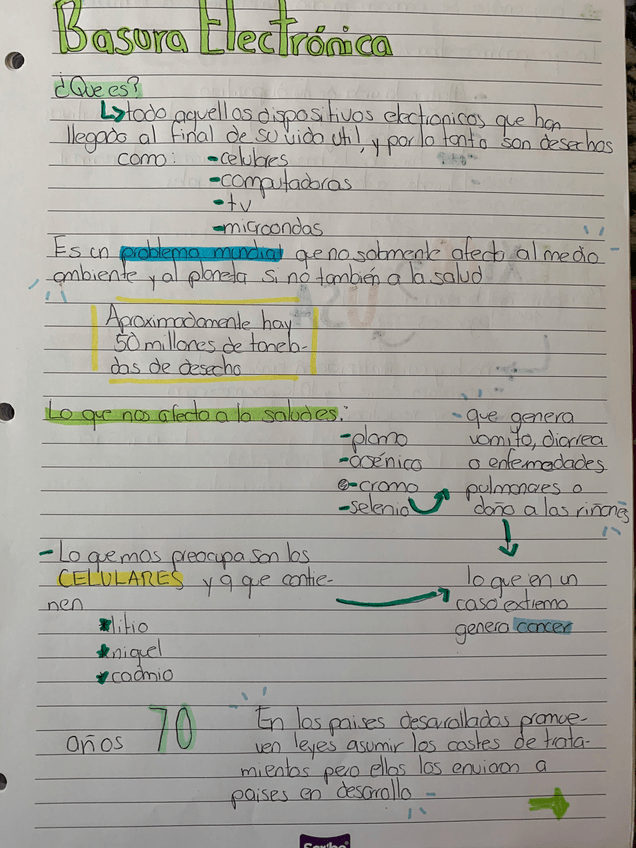 Basura Electrónica
¿Que es?
todo aquellos dispositivos electronicos que han
llegado al final de su vida util, y por lo tanto son desechos
como: -celulares
-computadoras
-tv
-microondas
Es un problema mundial que no solamente afecta al medio
ambiente y al planeta si no también a la salud
Aproximadamente hay
50 millones de tonela-
das de desecho
Lo que nos afecta a la salud es:
-plomo
-arsénico
-cromo
-selenio
- que genera
vomito, diarrea
o enfermedades
pulmonares o
daño a las riñones
lo que en un
caso extremo
genera cancer
- Lo que mas preocupa son los
CELULARES y a que contie-
nen
litio
niquel
cadmio
años 70
En los paises desarollados promue-
ven leyes asumir los costes de trata-
mientos pero ellos los enviaron a
paises en desarrollo
Scribe